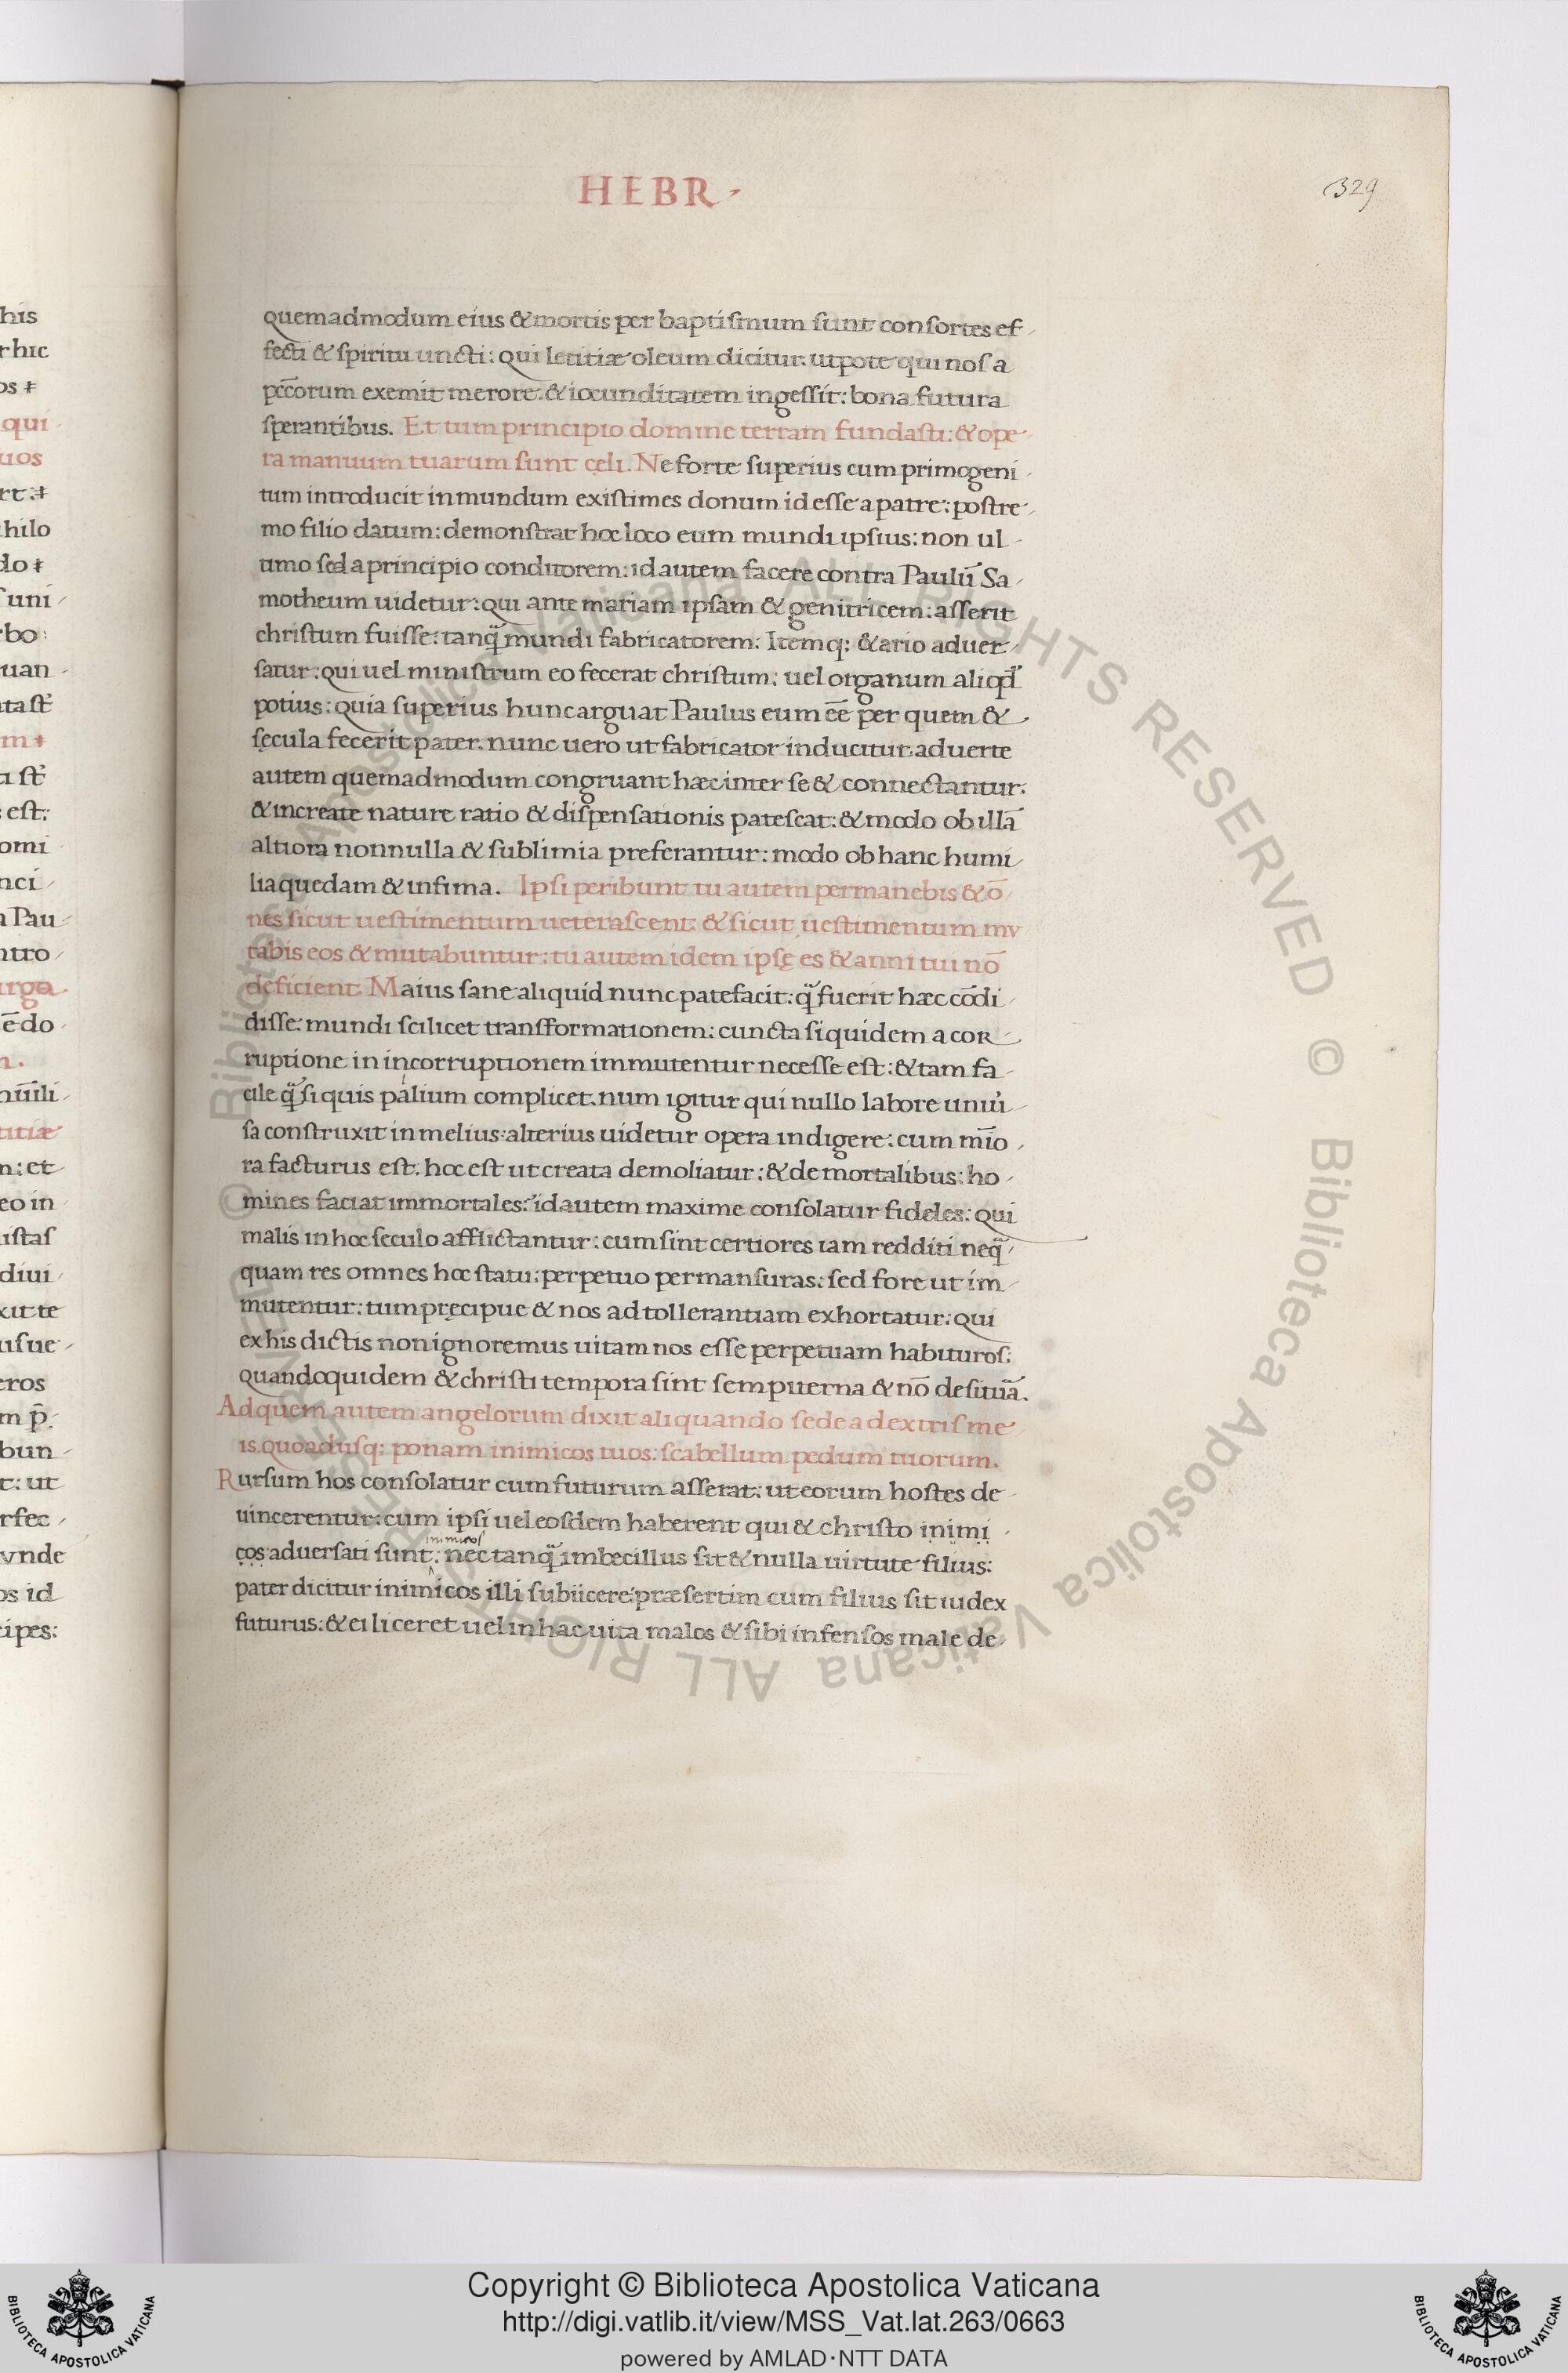 HEBR.
329
quemadmodum eius & mortis per baptismum sunt consortes ef
fecti & spiritu uncti: qui letitiæ oleum dicitur. utpote qui nos a
pcc̄orum exemit merore. & iocunditatem ingessit: bona futura
sperantibus. Et tum principio domine terram fundasti: & ope
ra manuum tuarum sunt cęli. Ne forte superius cum primogeni
tum introducit in mundum existimes donum id esse a patre: postre
mo filio datum: demonstrat hoc loco eum mundi ipsius: non ul
timo sed a principio conditorem: id autem facere contra Paulū Sa
motheum uidetur: qui ante mariam ipsam & genitricem: asserit
christum fuisse: tanq̃ mundi fabricatorem. Itemq: & ario aduer
satur: qui uel ministrum eo fecerat christum: uel organum aliqd̃
potius: quia superius hunc arguat Paulus eum ēē per quem &
sęcula fecerit pater. nunc uero ut fabricator inducitur. aduerte
autem quemadmodum congruant hæc inter se & connectantur.
& increate nature ratio & dispensationis patescat: & modo ob illā
altiora nonnulla & sublimia preferantur: modo ob hanc humi
lia quedam & infima. Ipsi peribunt tu autem permanebis & ō
nes sicut uestimentum ueterascent: & sicut uestimentum mu
tabis eos & mutabuntur: tu autem idem ipsę es & anni tui nō
deficient. Maius sane aliquid nunc patefacit: q̃ fuerit hæc cōdi
disse: mundi scilicet transformationem: cuncta siquidem a cor
ruptione in incorruptionem immutentur necesse est: & tam fa
cile q̃ si quis palium complicet. num igitur qui nullo labore uniu̓
sa construxit in melius: alterius uidetur opera indigere: cum mīo
ra facturus est. hoc est ut creata demoliatur: & de mortalibus: ho
mines faciat immortales: id autem maxime consolatur fideles: qui
malis in hoc seculo afflictantur: cum sint certiores iam redditi neq̃
quam res omnes hoc statu: perpetuo permansuras: sed fore ut im
mutentur: tum pręcipue & nos ad tollerantiam exhortatur: qui
ex his dictis non ignoremus uitam nos esse perpetuam habituros:
quandoquidem & christi tempora sint sempiterna & nō desituā.
Ad quem autem angelorum dixit aliquando sede a dextris me
is. quoadusq: ponam inimicos tuos: scabellum pedum tuorum.
Rursum hos consolatur cum futurum asserat: ut eorum hostes de
uincerentur: cum ipsi uel eosdem haberent qui & christo inimi
inimicos
cos aduersati sunt: nec tanq̃ imbecillus sit & nulla uirtute filius:
pater dicitur inimicos illi subiicere: præsertim cum filius sit iudex
futurus: & ei liceret uel in hac uita malos & sibi infensos male de
his
hic
os
qui
uos
rt:
hilo
do
uni
rbo:
uan
ta st̓
m
i st̓
est:
omi
nci
a Pau
ntro
urga
ēdo
n.
hūīli
titiæ
n: et
eo in
istas
diui
xit te
usue
eros
m p̄
bun
t: ut
rfec
vnde
os id
cipes:
© Biblioteca Apostolica Vaticana ALL RIGHTS RESERVED © Biblioteca Apostolica Vaticana ALL RIGHTS RESERVED
Copyright © Biblioteca Apostolica Vaticana
http://digi.vatlib.it/view/MSS_Vat.lat.263/0663
powered by AMLAD·NTT DATA
BIBLIOTECA APOSTOLICA VATICANA
BIBLIOTECA APOSTOLICA VATICANA